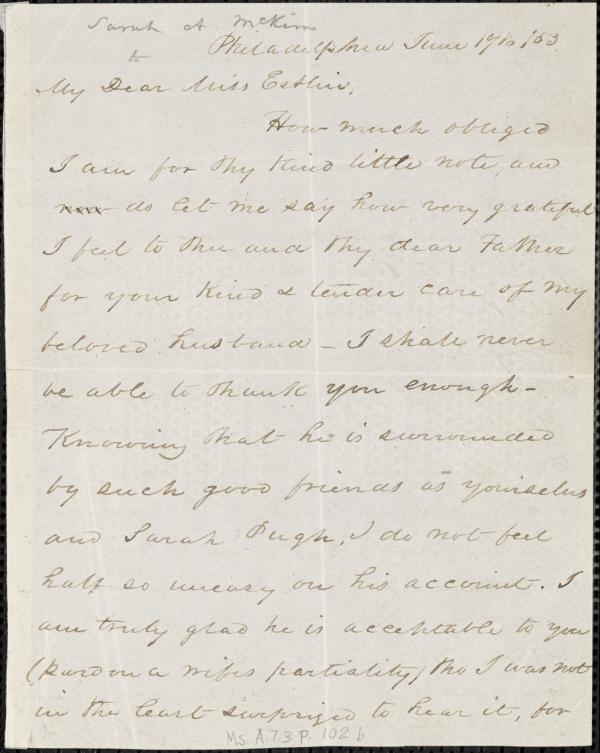 Sarah A McKim
to
Philadelphia June 17th /53
My Dear Miss Estlin,
How much obliged
I am for thy kind little note, and
do let me say how very grateful
I feel to thee and thy dear Father
for your kind & tender care of my
beloved husband – I shall never
be able to thank you enough –
Knowing that he is surrounded
by such good friends as yourselves
and Sarah Pugh, I do not feel
half so uneasy on his account. I
am truly glad he is acceptable to you
(pardon a wifes partiality) tho I was not
in the least surprized to hear it, for
Ms. A.7.3 P. 102 b